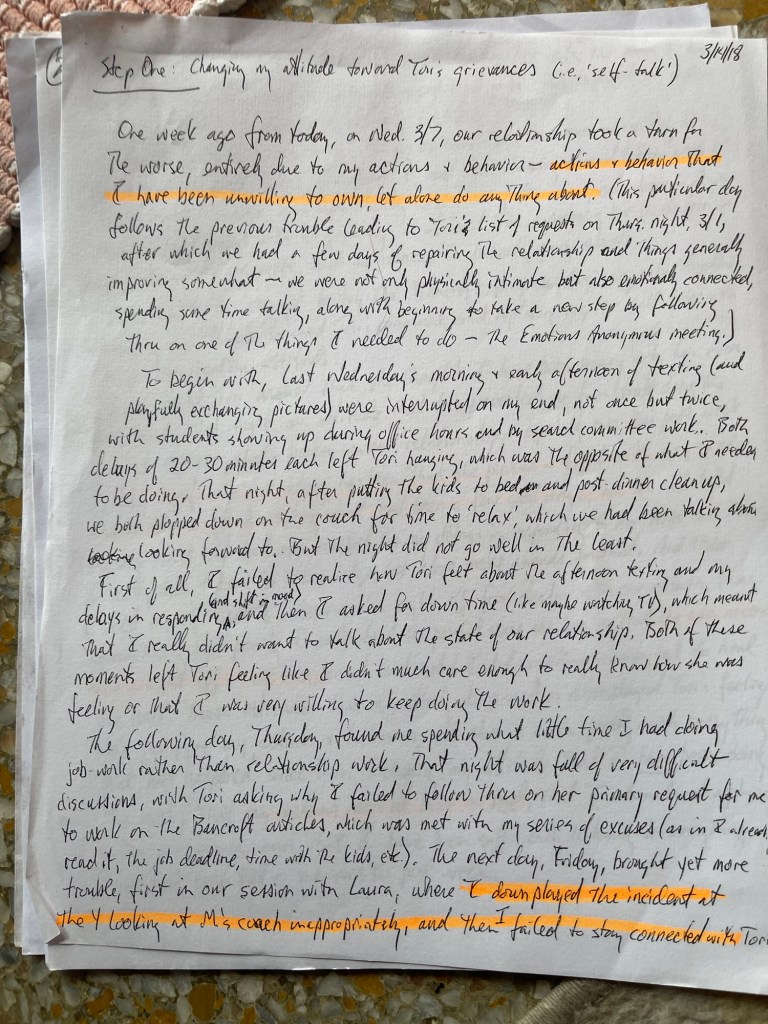 3/14/18
Step One: Changing my attitude toward Tori's grievances (i.e., 'self-talk')
One week ago from today, on Wed. 3/7, our relationship took a turn for
the worse, entirely due to my actions + behavior – actions + behavior that
I have been unwilling to own, let alone do anything about. (This particular day
follows the previous trouble leading to Tori's list of requests on Thurs. night, 3/1,
after which we had a few days of repairing the relationship and things generally
improving somewhat – we were not only physically intimate but also emotionally connected,
spending some time talking, along with beginning to take a new step by following
thru on one of the things I needed to do – the Emotions Anonymous meeting.)
To begin with, last Wednesday's morning + early afternoon of texting (and
playfully exchanging pictures) were interrupted on my end, not once but twice,
with students showing up during office hours and by search committee work. Both
delays of 20-30 minutes each left Tori hanging, which was the opposite of what I needed
to be doing. That night, after putting the kids to bed and post-dinner cleanup,
we both plopped down on the couch for time to 'relax', which we had been talking about
looking forward to. But the night did not go well in the least.
First of all, I failed to realize how Tori felt about the afternoon texting and my
delays in responding (and shift in mood), and then I asked for down time (like maybe watching TV), which meant
that I really didn't want to talk about the state of our relationship. Both of these
moments left Tori feeling like I didn't much care enough to really know how she was
feeling or that I was very willing to keep doing the work.
The following day, Thursday, found me spending what little time I had doing
job-work rather than relationship work. That night was full of very difficult
discussions, with Tori asking why I failed to follow thru on her primary request for me
to work on the Bancroft articles, which was met with my series of excuses (as in I already
read it, the job deadline, time with the kids, etc.). The next day, Friday, brought yet more
trouble, first in our session with Laura, where I downplayed the incident at
the Y looking at M's coach inappropriately, and then I failed to stay connected with Tori